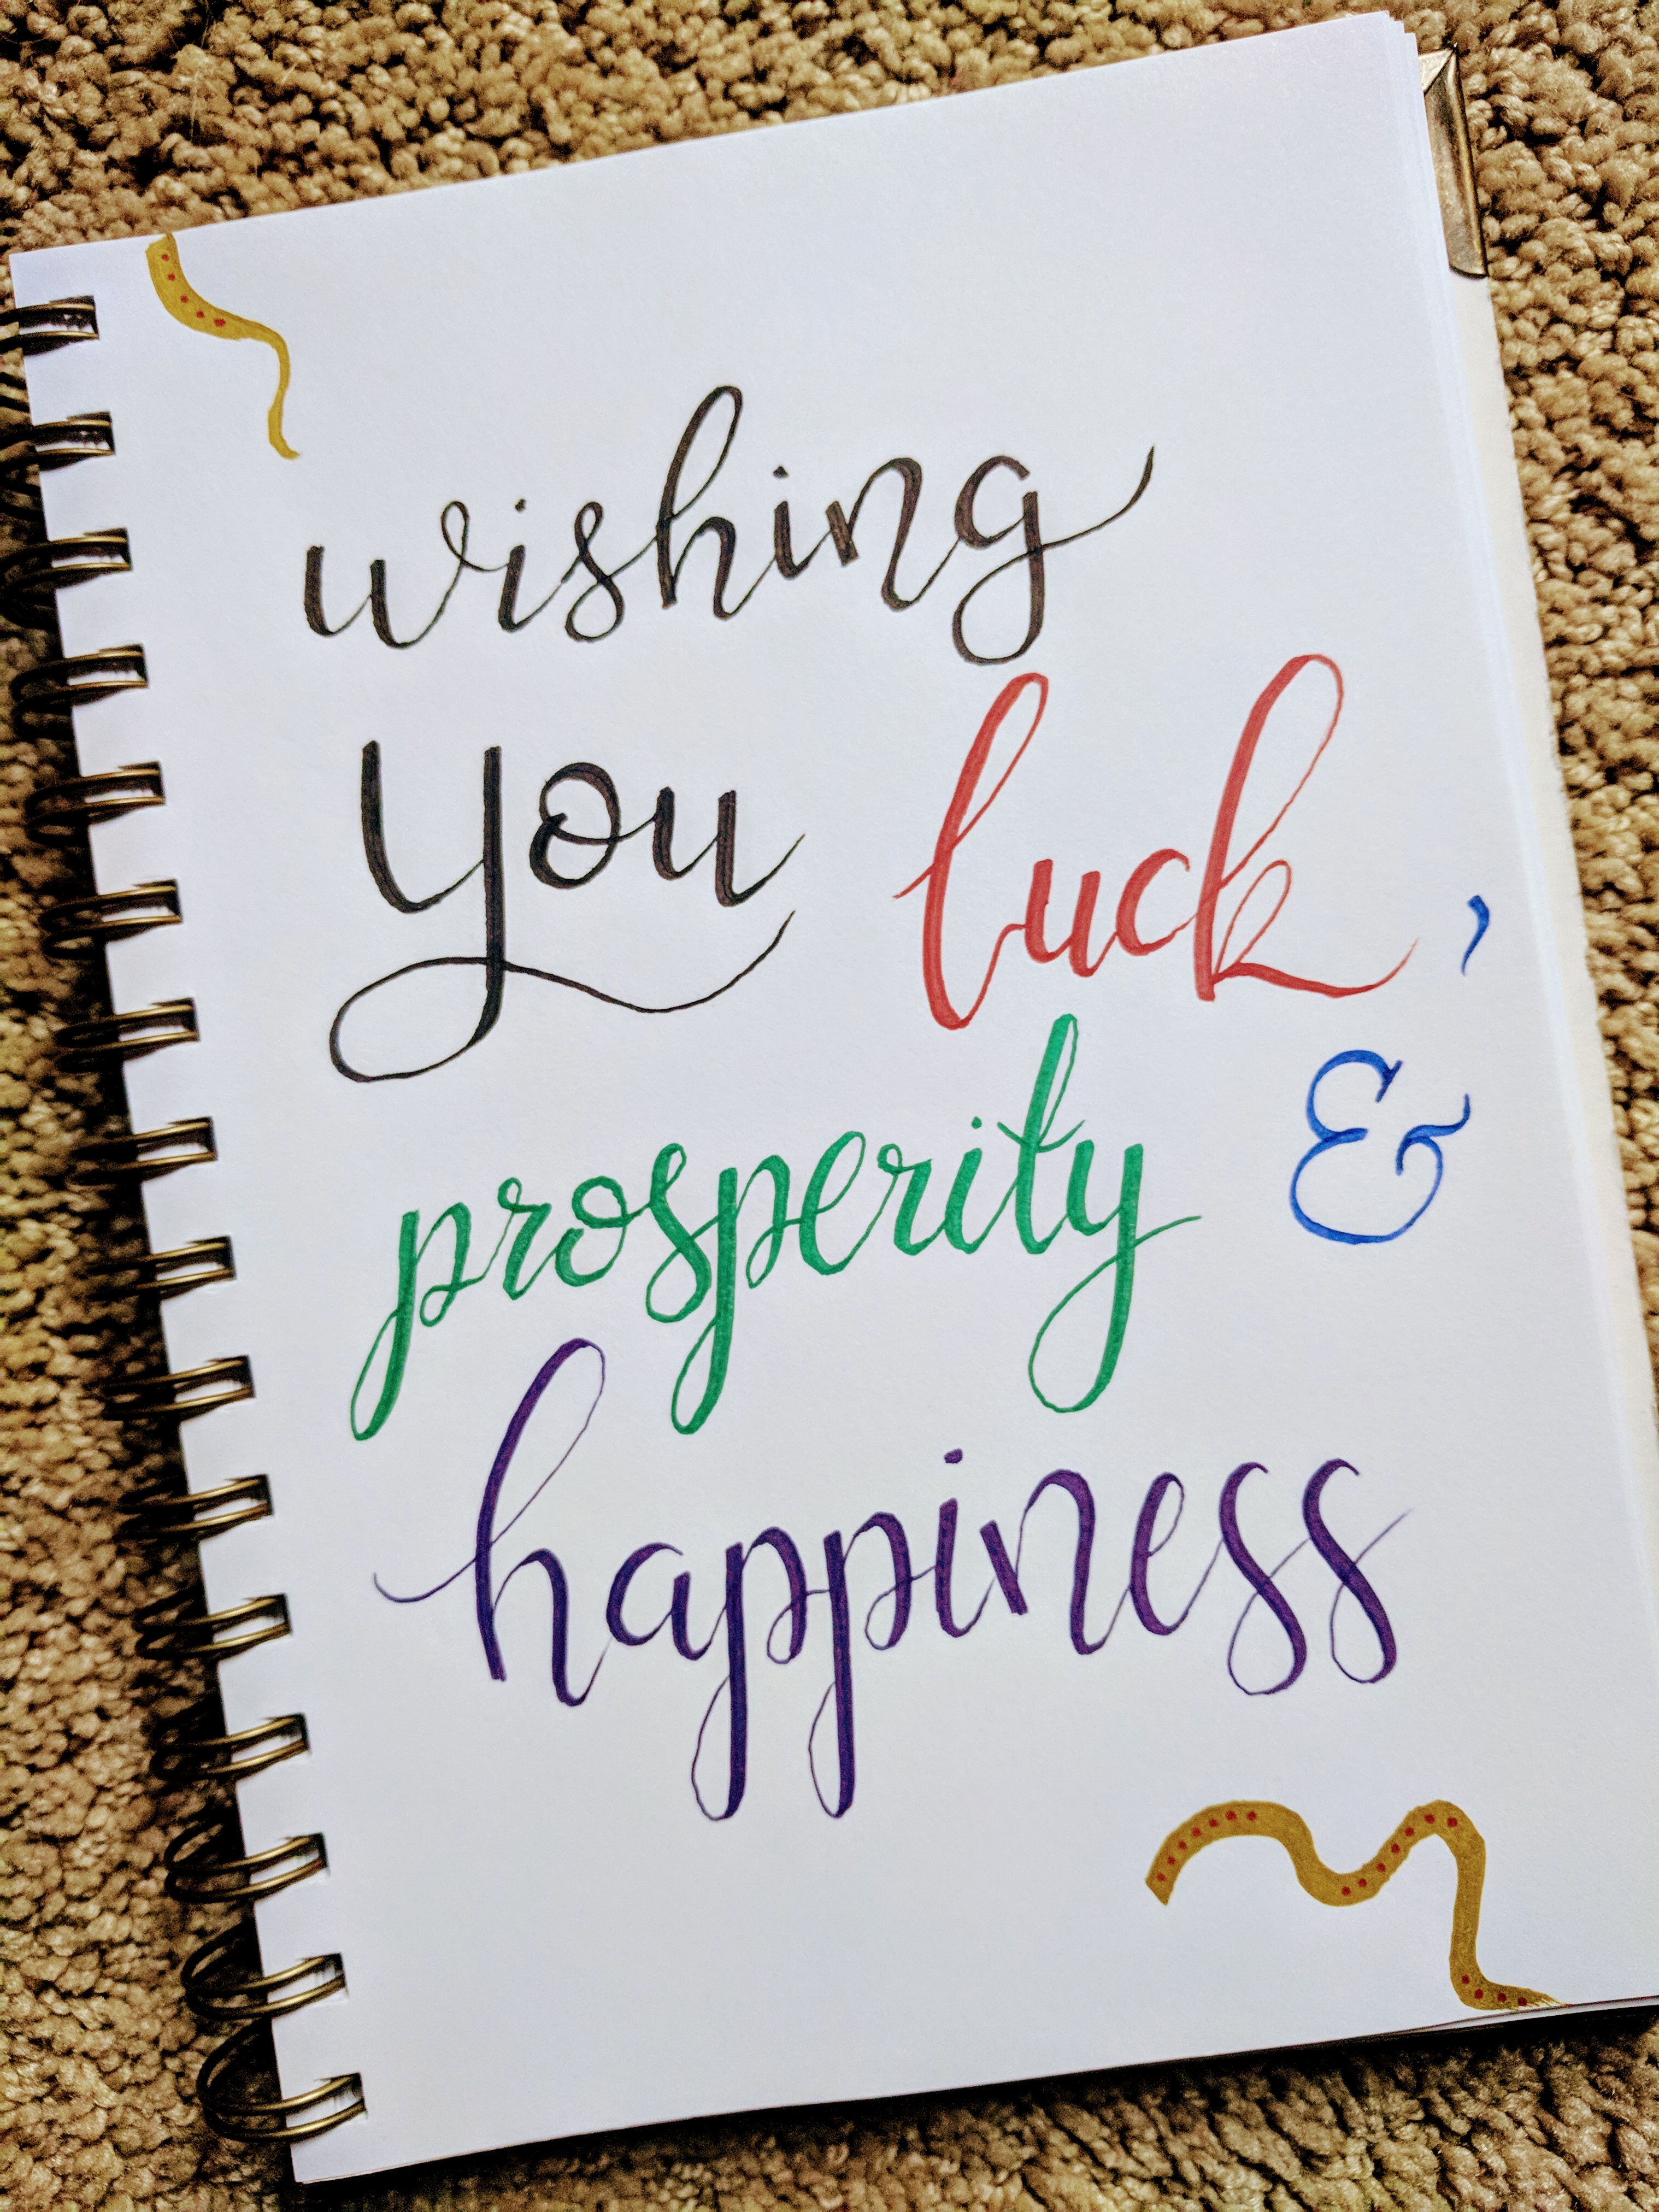 wishing
you luck,
prosperity &
happiness